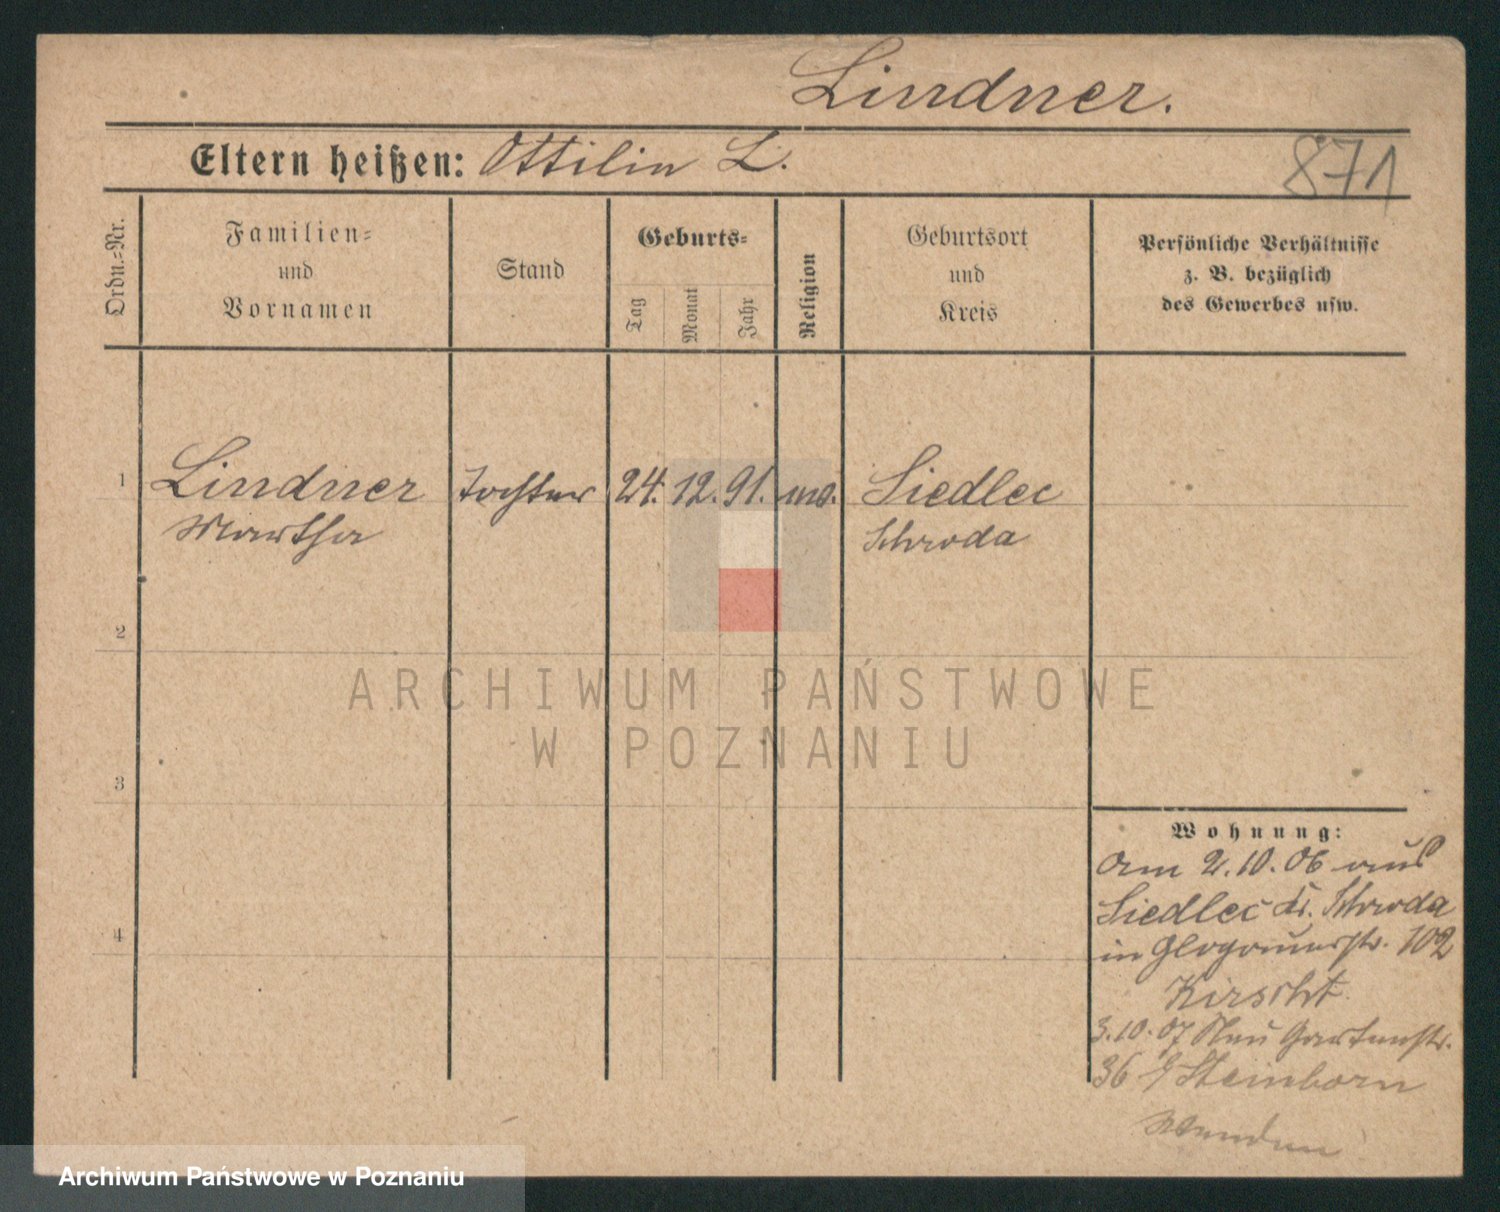 Lindner.
Eltern heißen: Ottilie L.
871
Ordn.-Nr.
Familien-
und
Vornamen
Stand
Geburts-
Tag
Monat
Jahr
Religion
Geburtsort
und
Kreis
Persönliche Verhältnisse
z. B. bezüglich
des Gewerbes usw.
1 Lindner Tochter 24. 12. 91. mo. Siedlec
Martha Schroda
2
ARCHIWUM PAŃSTWOWE
W POZNANIU
3
Wohnung:
am 2.10.06 aus
Siedlec Kr. Schroda
4
in Glogauerstr. 102
Kirscht.
3.10.07 Neu Gartenstr.
36 Steinborn
wenden
Archiwum Państwowe w Poznaniu